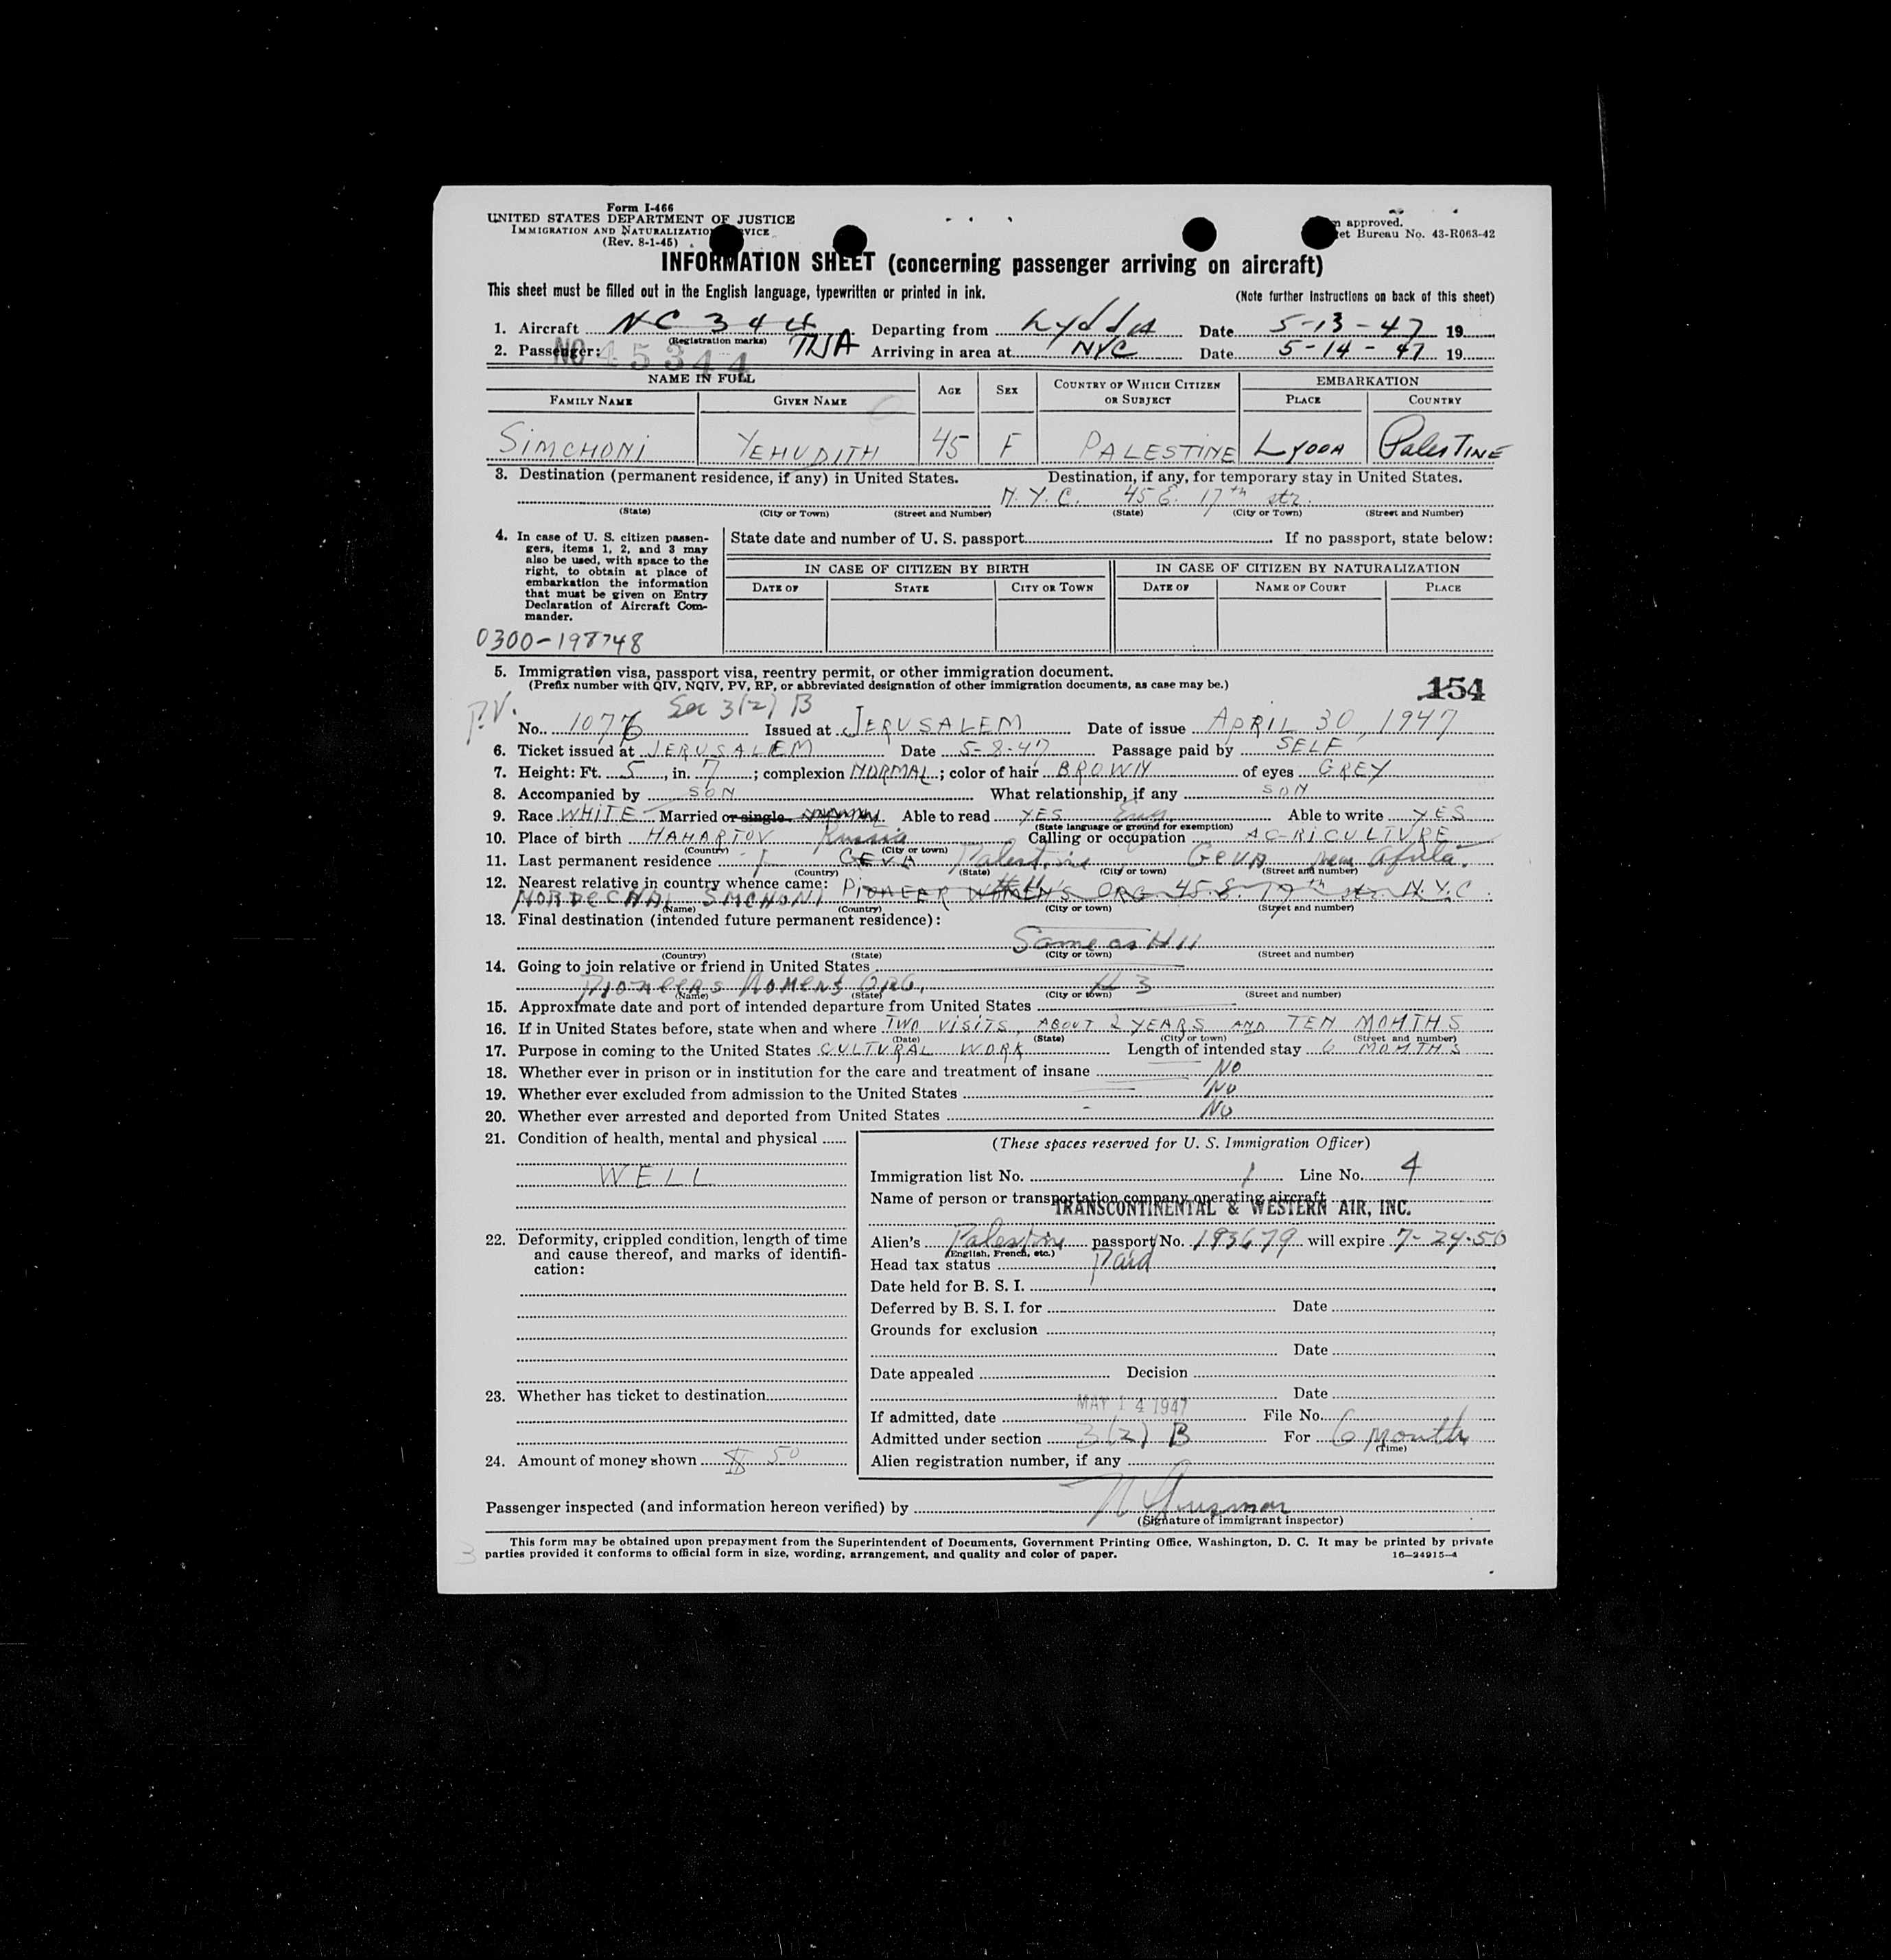 Form I-466
UNITED STATES DEPARTMENT OF JUSTICE
IMMIGRATION AND NATURALIZATIO VICE
(Rev. 8-1-45)
approved.
et Bureau No. 43-R063-42
INFORMATION SHEET (concerning passenger arriving on aircraft)
This sheet must be filled out in the English language, typewritten or printed in ink.
(Note further Instructions on back of this sheet)
1. Aircraft NC 344 Departing from Lydda Date 5-13-47 19
(Registration marks)
2. Passenger: NO 45344 TWA Arriving in area at NYC Date 5-14-47 19
NAME IN FULL AGE SEX COUNTRY OF WHICH CITIZEN OR SUBJECT EMBARKATION
FAMILY NAME GIVEN NAME PLACE COUNTRY
SIMCHONI YEHUDITH 45 F PALESTINE LYDDA PALESTINE
3. Destination (permanent residence, if any) in United States. Destination, if any, for temporary stay in United States.
N.Y.C. 45 E. 17th str.
(State) (City or Town) (Street and Number) (State) (City or Town) (Street and Number)
4. In case of U. S. citizen passen-
gers, items 1, 2, and 3 may
also be used, with space to the
right, to obtain at place of
embarkation the information
that must be given on Entry
Declaration of Aircraft Com-
mander.
0300-198748
State date and number of U. S. passport If no passport, state below:
IN CASE OF CITIZEN BY BIRTH IN CASE OF CITIZEN BY NATURALIZATION
DATE OF STATE CITY OR TOWN DATE OF NAME OF COURT PLACE
5. Immigration visa, passport visa, reentry permit, or other immigration document.
(Prefix number with QIV, NQIV, PV, RP, or abbreviated designation of other immigration documents, as case may be.)
154
P.V. Sec 3(2) B
No. 1076 Issued at JERUSALEM Date of issue APRIL 30, 1947
6. Ticket issued at JERUSALEM Date 5-8-47 Passage paid by SELF
7. Height: Ft. 5, in. 7; complexion NORMAL; color of hair BROWN of eyes GREY
8. Accompanied by SON What relationship, if any SON
9. Race WHITE Married or single Able to read YES Eng Able to write YES
(State language or ground for exemption)
10. Place of birth HAHARTOV Russia Calling or occupation AGRICULTURE
(Country) (City or town)
11. Last permanent residence GEVA Palestine Geva near Afula.
(Country) (State) (City or town) (Street and number)
12. Nearest relative in country whence came: PIONEER WOMEN'S ORG 45 E. 17th str. N.Y.C.
MORDECHAI SIMCHONI
(Name) (Country) (City or town) (Street and number)
13. Final destination (intended future permanent residence):
Same as # 11
(Country) (State) (City or town) (Street and number)
14. Going to join relative or friend in United States
Pioneers Women's ORG. # 3
(Name) (State) (City or town) (Street and number)
15. Approximate date and port of intended departure from United States
16. If in United States before, state when and where TWO VISITS, ABOUT 2 YEARS AND TEN MONTHS
(Date) (State) (City or town) (Street and number)
17. Purpose in coming to the United States CULTURAL WORK Length of intended stay 6 MONTHS
18. Whether ever in prison or in institution for the care and treatment of insane NO
19. Whether ever excluded from admission to the United States NO
20. Whether ever arrested and deported from United States NO
21. Condition of health, mental and physical
WELL
22. Deformity, crippled condition, length of time
and cause thereof, and marks of identifi-
cation:
23. Whether has ticket to destination
24. Amount of money shown $ 50
(These spaces reserved for U. S. Immigration Officer)
Immigration list No. 1 Line No. 4
Name of person or transportation company operating aircraft
TRANSCONTINENTAL & WESTERN AIR, INC.
Alien's Palestine passport No. 193679 will expire 7-24-50
(English, French, etc.)
Head tax status Paid
Date held for B. S. I.
Deferred by B. S. I. for Date
Grounds for exclusion
Date
Date appealed Decision
Date
If admitted, date MAY 14 1947 File No.
Admitted under section 3(2) B For 6 Month
(Time)
Alien registration number, if any
Passenger inspected (and information hereon verified) by
(Signature of immigrant inspector)
This form may be obtained upon prepayment from the Superintendent of Documents, Government Printing Office, Washington, D. C. It may be printed by private
parties provided it conforms to official form in size, wording, arrangement, and quality and color of paper.
16—24915-4